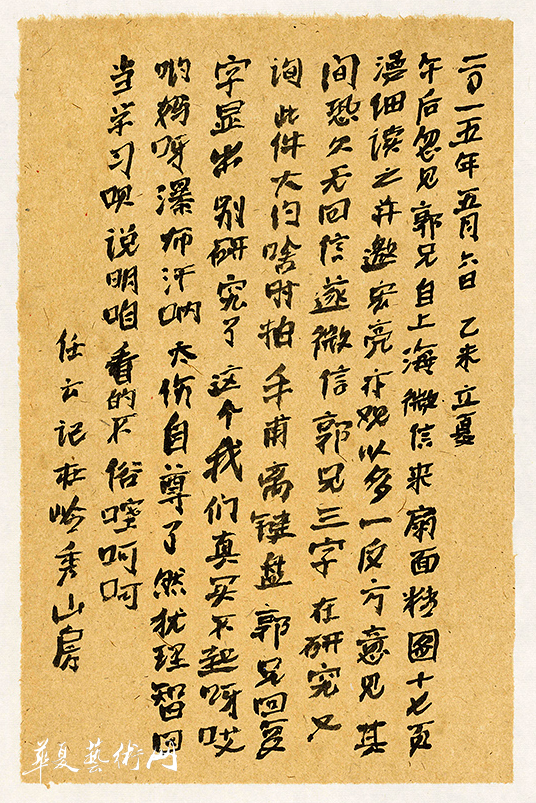 二〇一五年五月六日 乙未立夏
午后忽见郭兄自上海微信来扇面精图十七页
漫细读之并邀宏亮亦观以多一反方意见其
间恐久无回信遂微信郭兄三字在研究又
询此件大约啥时拍手甫离键盘郭兄回复
字显出别研究了这个我们真买不起呀哎
哟妈呀瀑布汗呐太伤自尊了然犹理智回
当学习呗说明咱看的不俗嘡呵呵
任云记在岭秀山房
華夏藝術网